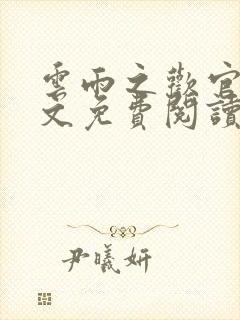 雲雨之歡官
文免費閱讀
尹曦妍